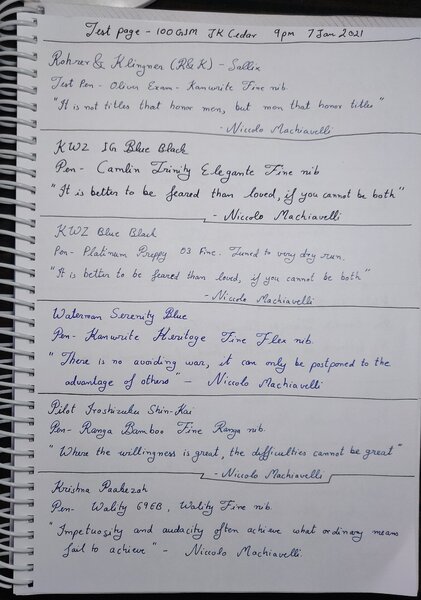 Test page - 100 GSM JK Cedar 9pm 7 Jan 2021
Rohrer & Klingner (R&K) - Salix
Test Pen - Oliver Exam - Kanwrite Fine nib
"It is not titles that honor men, but men that honor titles"
- Niccolo Machiavelli
KWZ IG Blue Black
Pen - Camlin Trinity Elegante Fine nib
"It is better to be feared than loved, if you cannot be both"
- Niccolo Machiavelli
KWZ Blue Black
Pen - Platinum Preppy 03 Fine. Tuned to very dry run.
"It is better to be feared than loved, if you cannot be both"
- Niccolo Machiavelli
Waterman Serenity Blue
Pen - Kanwrite Heritage Fine Flex nib.
"There is no avoiding war, it can only be postponed to the
advantage of others" - Niccolo Machiavelli
Pilot Iroshizuku Shin-Kai
Pen - Ranga Bamboo Fine Ranga nib.
"Where the willingness is great, the difficulties cannot be great"
- Niccolo Machiavelli
Krishna Paakezah
Pen - Wality 69EB, Wality Fine nib.
"Impetuosity and audacity often achieve what ordinary means
fail to achieve" - Niccolo Machiavelli